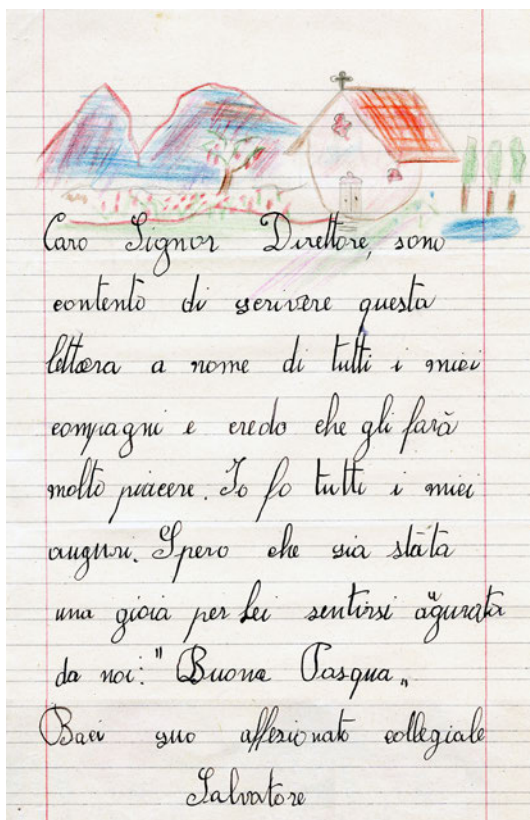 Caro Signor Direttore, sono
contento di scrivere questa
lettera a nome di tutti i miei
compagni e credo che gli farà
molto piacere. Io fo tutti i miei
auguri. Spero che sia stata
una gioia per Lei sentirsi agurata
da noi: "Buona Pasqua„
Baci suo affezionato collegiale
Salvatore